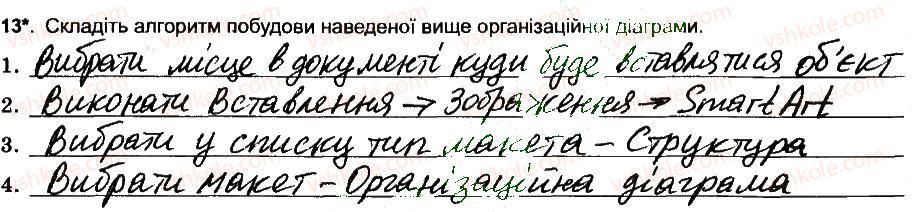 13*. Складіть алгоритм побудови наведеної вище організаційної діаграми.
1. Вибрати місце в документі куди буде вставлятися об'єкт
2. Виконати Вставлення → Зображення → SmartArt
3. Вибрати у списку тип макета – Структура
4. Вибрати макет – Організаційна діаграма